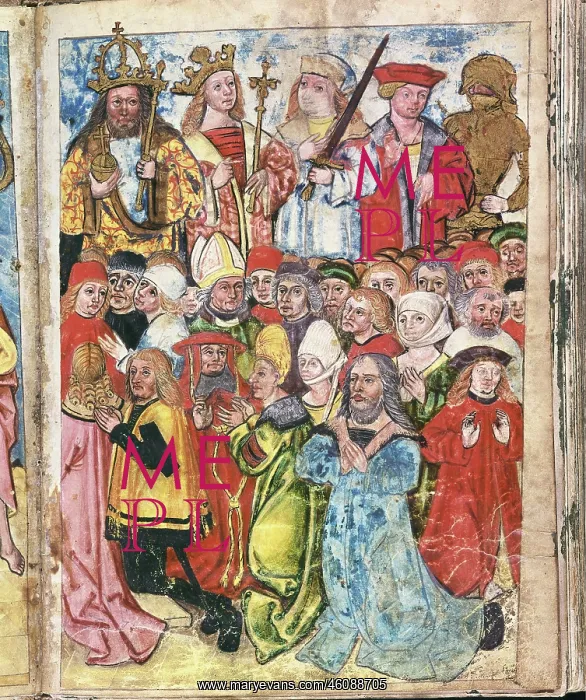 ME
PL
ME
PL
www.maryevans.com/46088705